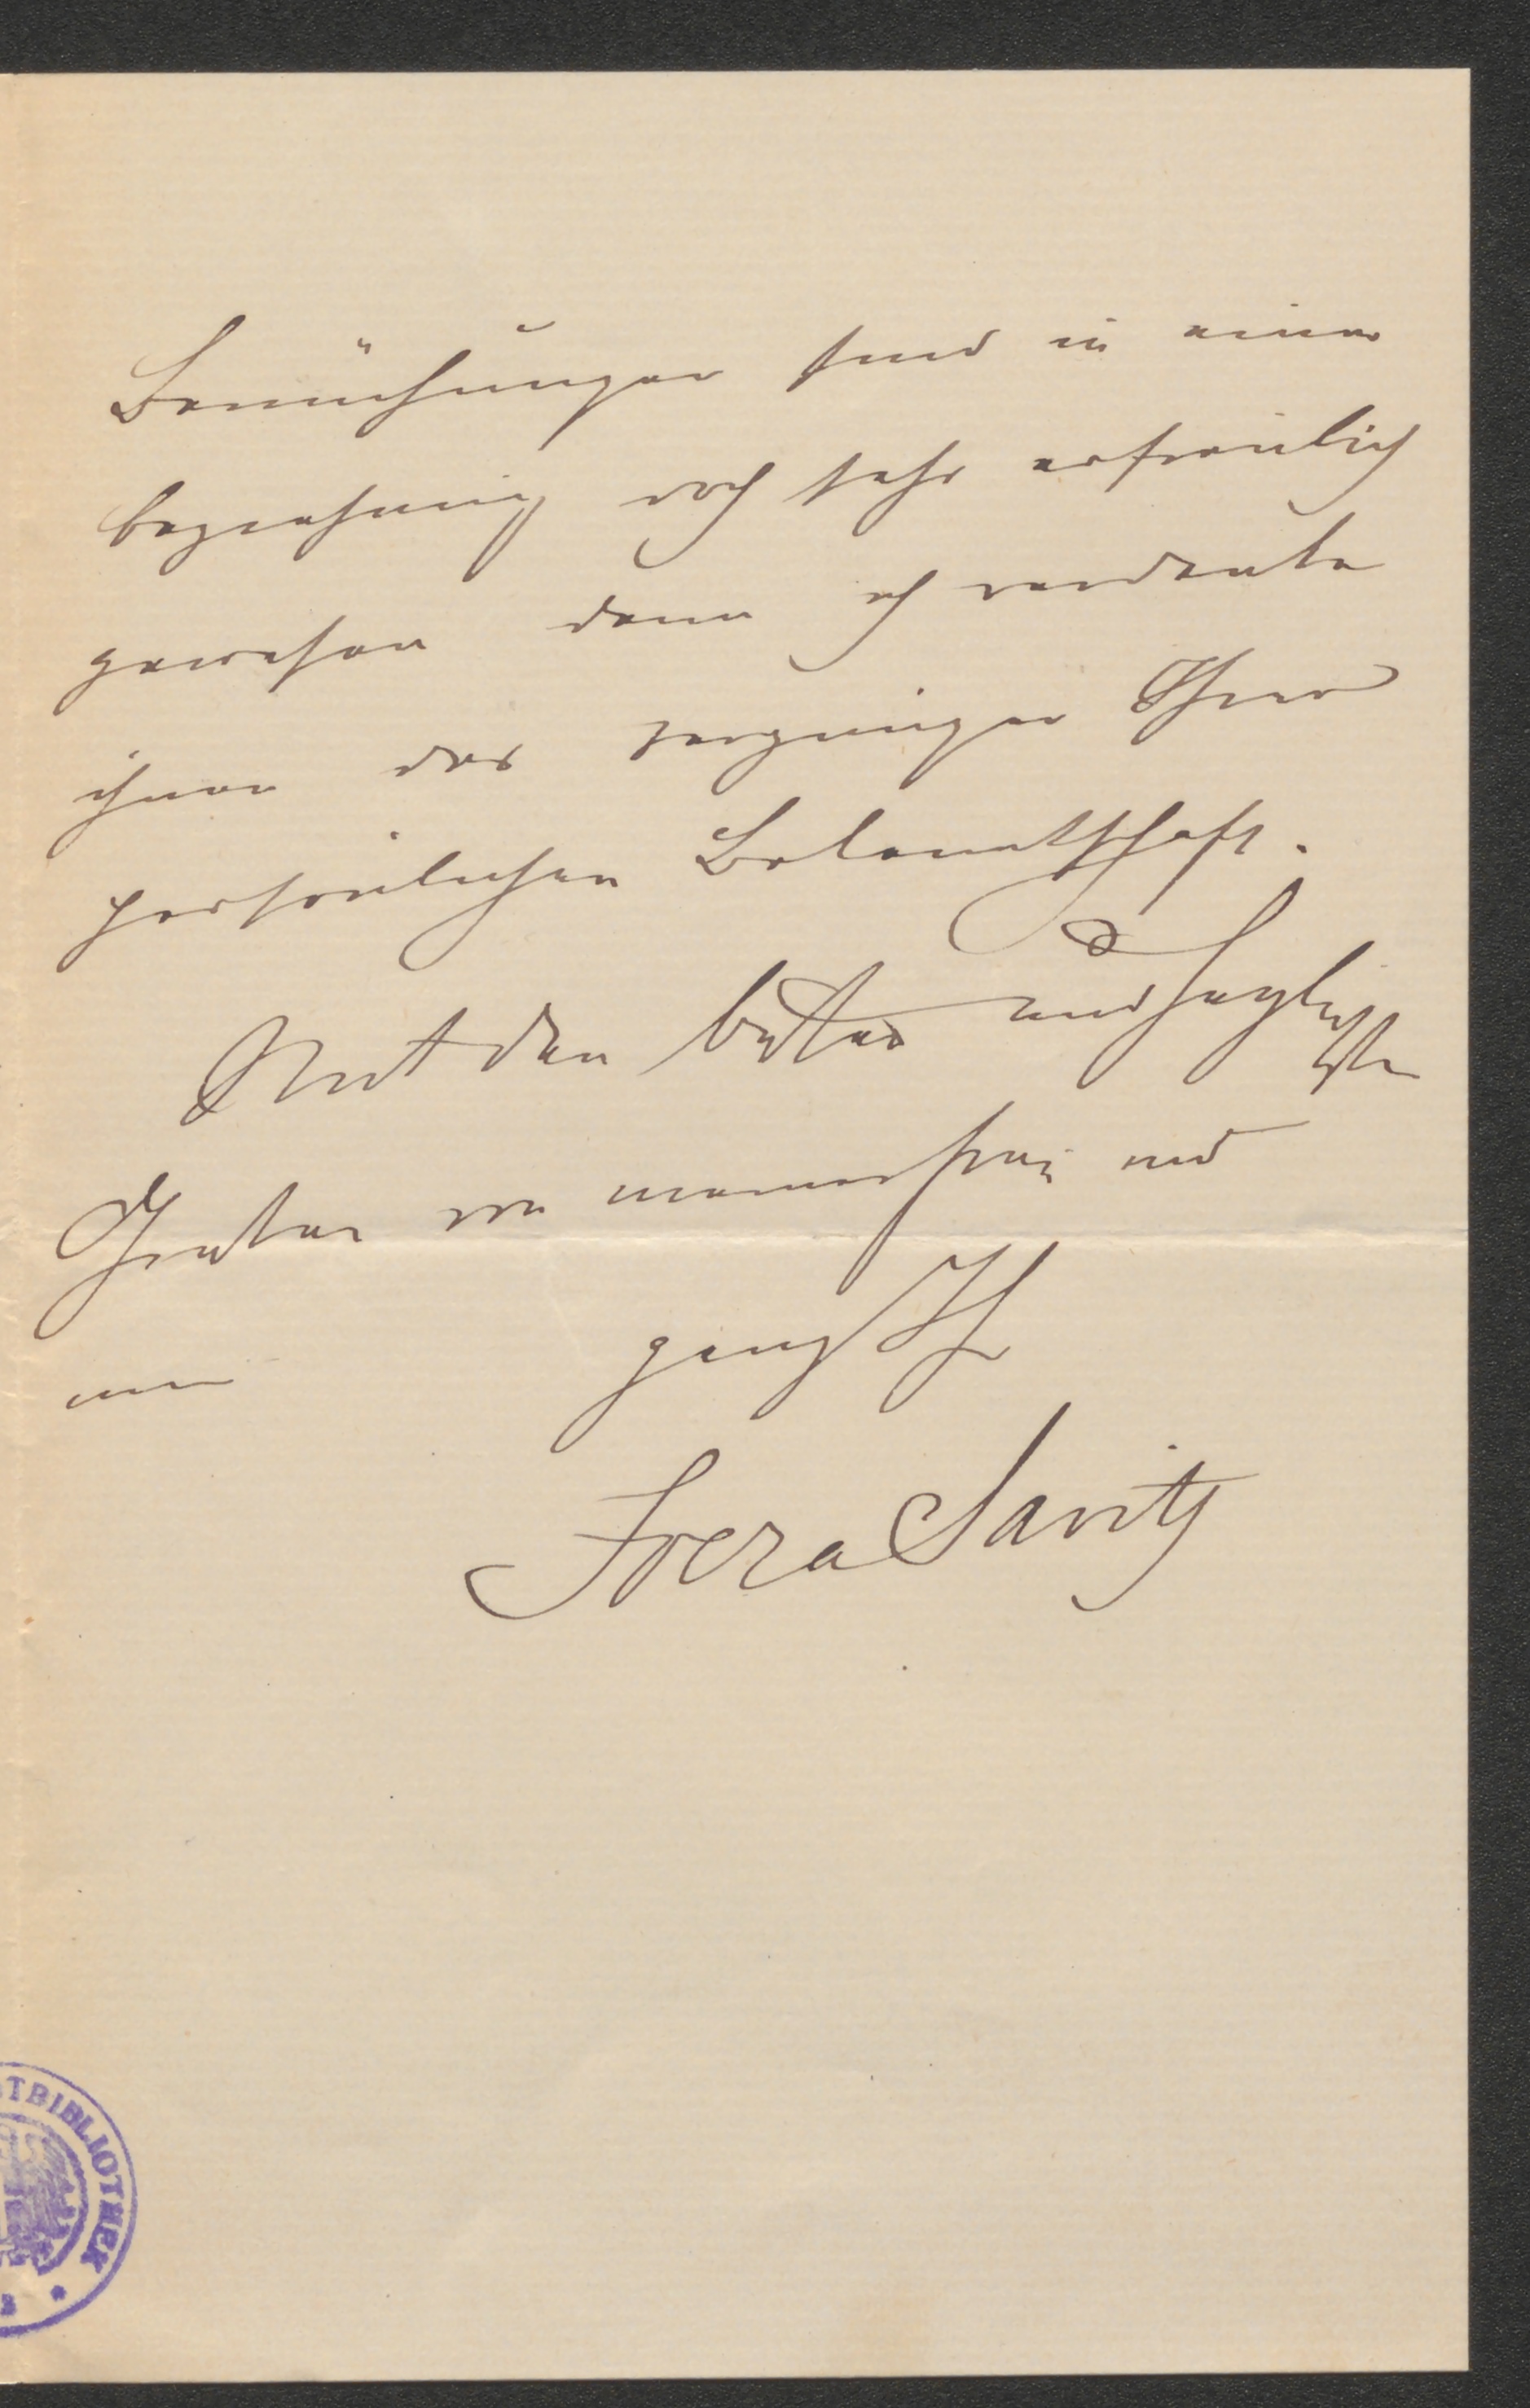 Bemühungen sind in einer
beziehung doch sehr erfreulich
gewesen denn ich verdanke
ihnen das vergnügen Ihrer
persönlichen Bekanntschaft.
Mit den besten und herzlichsten
Grüßen von meiner frau und
mir ganz Ihr
Jocza Savits
TBIBLIOTHEK